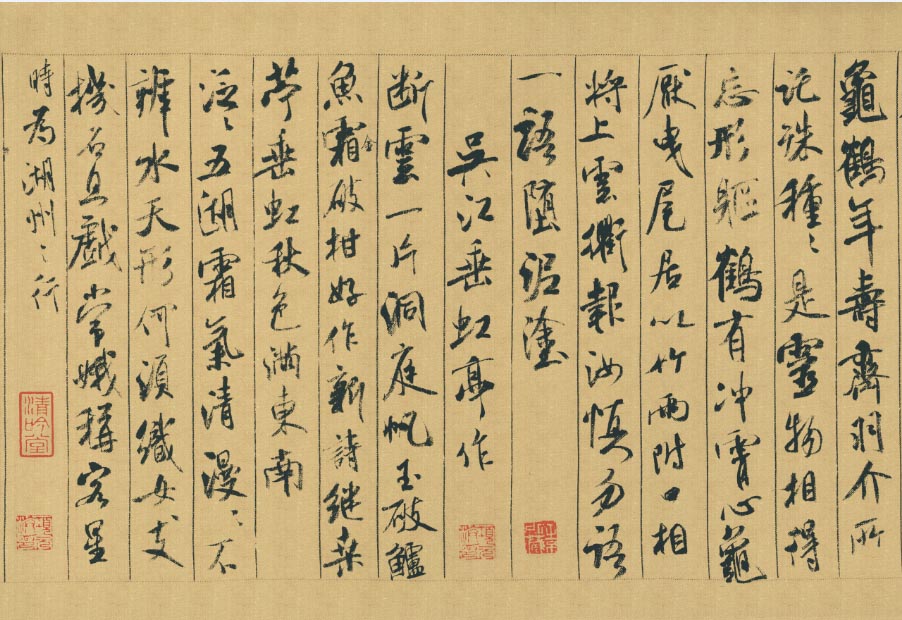 龜鶴年壽齊羽介所
託殊種〻是靈物相得
忘形軀鶴有冲霄心龜
厭曳尾居以竹兩附口相
將上雲衢報汝慎勿語
一語墮泥塗
吳江垂虹亭作
断雲一片洞庭帆玉破鱸
魚霜金破柑好作新詩継桑
苧垂虹秋色滿東南
泛〻五湖霜氣清漫〻不
辨水天形何須織女支
機石且戲常娥稱客星
時為湖州之行
清吟堂